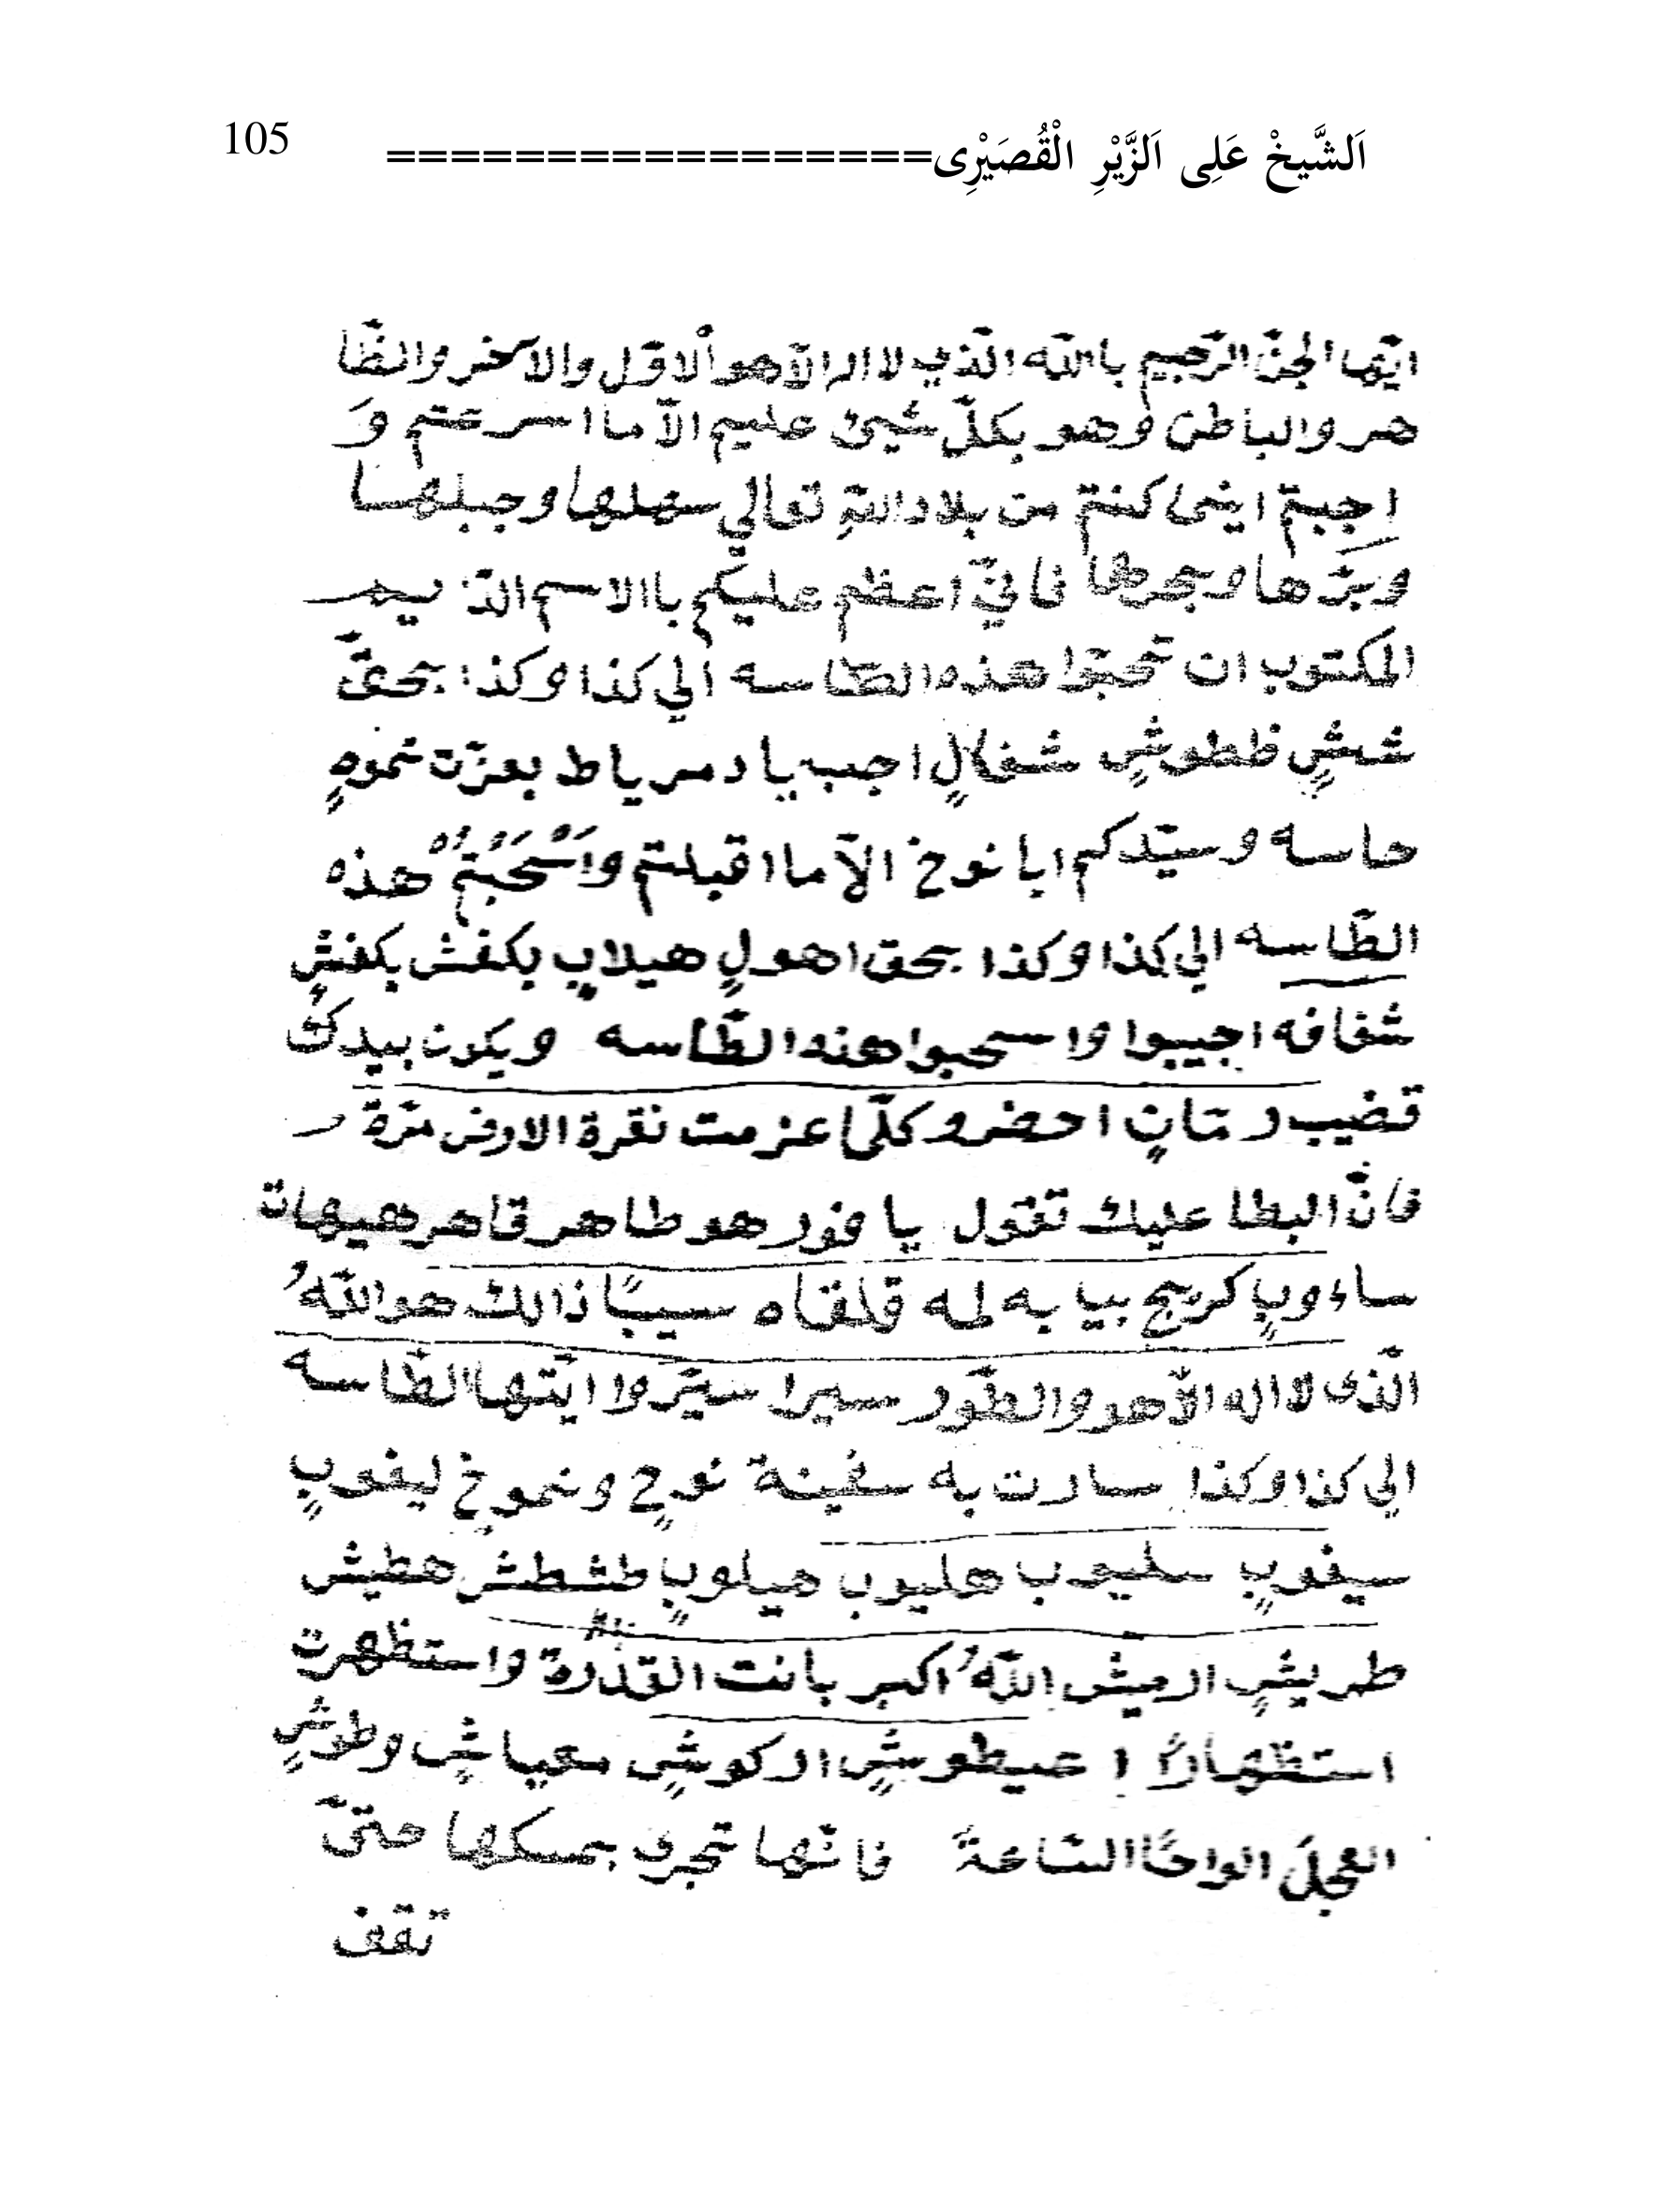 اَلشَّيخْ عَلِى اَلزَّيْرِ الْقُصَيْرِى================= 105
ايّها الجنّ الرّجيم باالله الّذي لا اله الاّ هو ألاوّل والآخر والظّا
هر والباطن وهو بكلّ شيئ عليم الاّ ما اسرعتم وَ
اجبتم اينما كنتم من بلاد اللهِ تعالي سهلها وجبلها
وبرّها وبحرها فانيّ اعظم عليكم باالاسم الّذي
المكتوب ان تحبّوا هذه الطّاسه الي كذا وكذا بحقّ
ششٍ ظطوشٍ شفالٍ اجب يا دمرياط بعزّت نموهٍ
حاسه وسيّدكم ابا نوخ الاّ ما اقبلتم وَاسْحَبْتُمْ هذه
الطّاسه الي كذا وكذا بحق اهولٍ هيلابٍ بكفش بكفشٍ
شفافه اجيبوا واسحبوا هذه الطّاسه ويكون بيدك
قضيب رمّانٍ احضر وكلّما عزمت نقرة الارض مرّة
فانّ البطا عليك تقول يا فور هو طاهر قاهر هيهات
ساءوبٍ كريج بيا به لمه قلقاه سيبًا ذالك هو اللهُ
الّذى لا اله الاّ هو والطّور سيرا سيّروا ايّتها الطّاسه
الي كذا وكذا سارت به سفينة نوحٍ ونموخٍ ليغوبٍ
سيغوبٍ سليوب هليوب هيلوبٍ طشطش هطيش
طريشٍ ارميش اللهُ اكبر بانت القدرة واستظهرت
استظهارًا اعيطوشٍ اركوشٍ معياشٍ وطوشٍ
العجل الواحًا السّاعةً فانّها تجرى بمسكها حتىّ
تقف